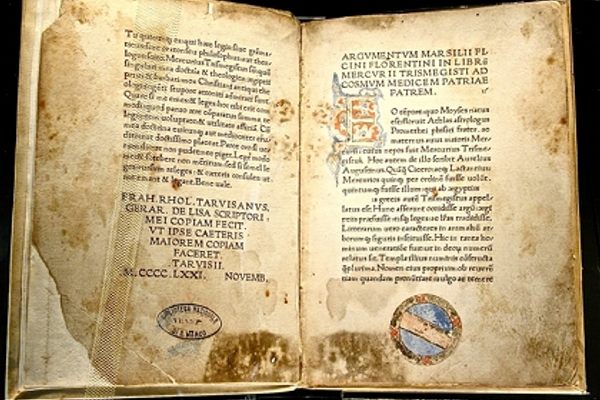 Tu quicunq es qui hæc legis siue gram-
maticus siue orator seu philosophus aut theo-
logus scito: Mercurius Trismegistus sū quē
singulari mea doctrina & theologica ægyptii
prius & barbari mox Christiani antiqui the-
ologi ingēti stupore attoniti admirati sunt.
Quare si me emes & leges hoc tibi erit com-
modi quod paruo ære cōparatus summa te
legentem uoluptate & utilitate afficiā. Cū
mea doctrina cuicunq aut mediocriter eru-
dito aut doctissimo placeat. Parce oro si ue-
rum dicere non pudet nec piget. Lege modo
me & fatebere non mentitum sed si semel le-
ges rursum releges & cæteris consules ut
me emant & legant. Bene uale.
FRAN. RHOL. TARVISANVS.
GERAR. DE LISA SCRIPTORI.
MEI COPIAM FECIT.
VT IPSE CAETERIS
MAIOREM COPIAM
FACERET.
TARVISII.
M.CCCC.LXXI. NOVEMB.
BIBLIOTECA NAZIONALE
DI S. MARCO
ARGVMENTVM MARSILII FI-
CINI FLORENTINI IN LIBRV
MERCVRII TRISMEGISTI AD
COSMVM MEDICEM PATRIAE
PATREM.
EO tēpore quo Moyses natus
est floruit Athlas astrologus
Promethei physici frater ac
maternus auus maioris Mer-
curii: cuius nepos fuit Mercurius Trisme-
gistus. Hoc autem de illo scribit Aurelius
Augustinus. Quāq Cicero atq Lactantius
Mercurios quinq per ordinē fuisse uolūt
quintumq fuisse illum qui ab ægyptiis
is græcis autē Trismegistus appel-
latus est. Hunc asserunt occidisse argū: ægy-
ptiis præfuisse eisq leges: ac lras tradidisse.
Litterarum uero caracteres in animaliū ar-
borumq figuris instituisse. Hic in tanta ho-
minum ueneratione fuit ut in deoq numerū
relatus sit. Templa illius numine cōstructa
q̄plurima. Nomen eius proprium ob reuerē
tiam quandam pronūtiare uulgo ac temere